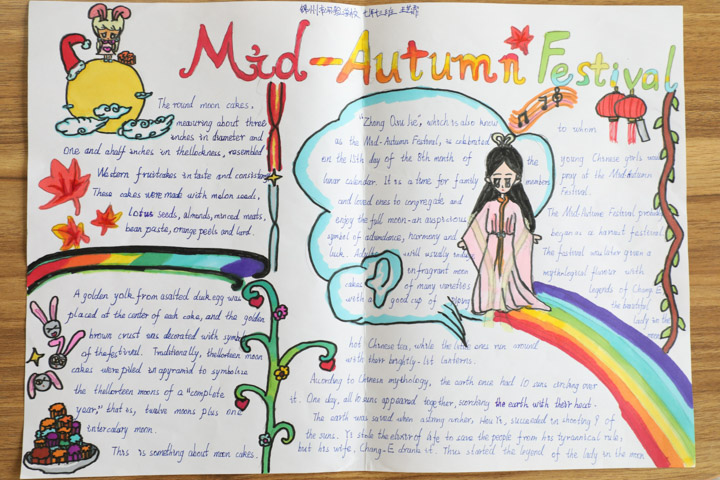 Mid-Autumn Festival
The round moon cakes,
measuring about three
inches in diameter and
One and ahalf inches in thellockness, resembled
Western fruitcakes in taste and consisting
These cakes were made with melon seeds,
lotus seeds, almonds, minced meats,
bean paste, orange peels and lard.
A golden yolk from asalted duck egg was
placed at the center of each cake, and the golden
brown crust was decorated with symbols
of the festival. Traditionally, thellorteen moon
cakes were piled in apyramid to symbolise
the thellorteen moons of a "complete
year," that is, twelve moons plus one
intercalary moon.
This is something about moon cakes.
"Zhong Qiu Jie", which is also know
as the Mid-Autumn Festival, is celebrated
on the 15th day of the 8th month of the
lunar calendar. It is a time for family members
and loved ones to congregate and
enjoy the full moon-an auspicious
symbol of abundance, harmony and
luck. Adults will usually
in fragrant moon
cakes of many varieties
with a good cup of
hot Chinese tea, while the little ones run around
with their brightly-lit lanterns.
to whom
young Chinese girls would
pray at the Mid-Autumn
Festival.
The Mid-Autumn Festival
began as a harvest festival.
The festival was later given a
mythological flavour with
legends of Chang-E
the beautiful
lady in the
moon
According to Chinese mythology, the earth once had 10 suns circling over
it. One day, all 10 suns appeared together, scorching the earth with their heat.
The earth was saved when astrong archer, Hou Yi, succeeded in shooting 9 of
the suns. Yi stole the elixir of life to save the people from his tyrannical rule,
but his wife, Chang-E drank it. Thus started the legend of the lady in the moon